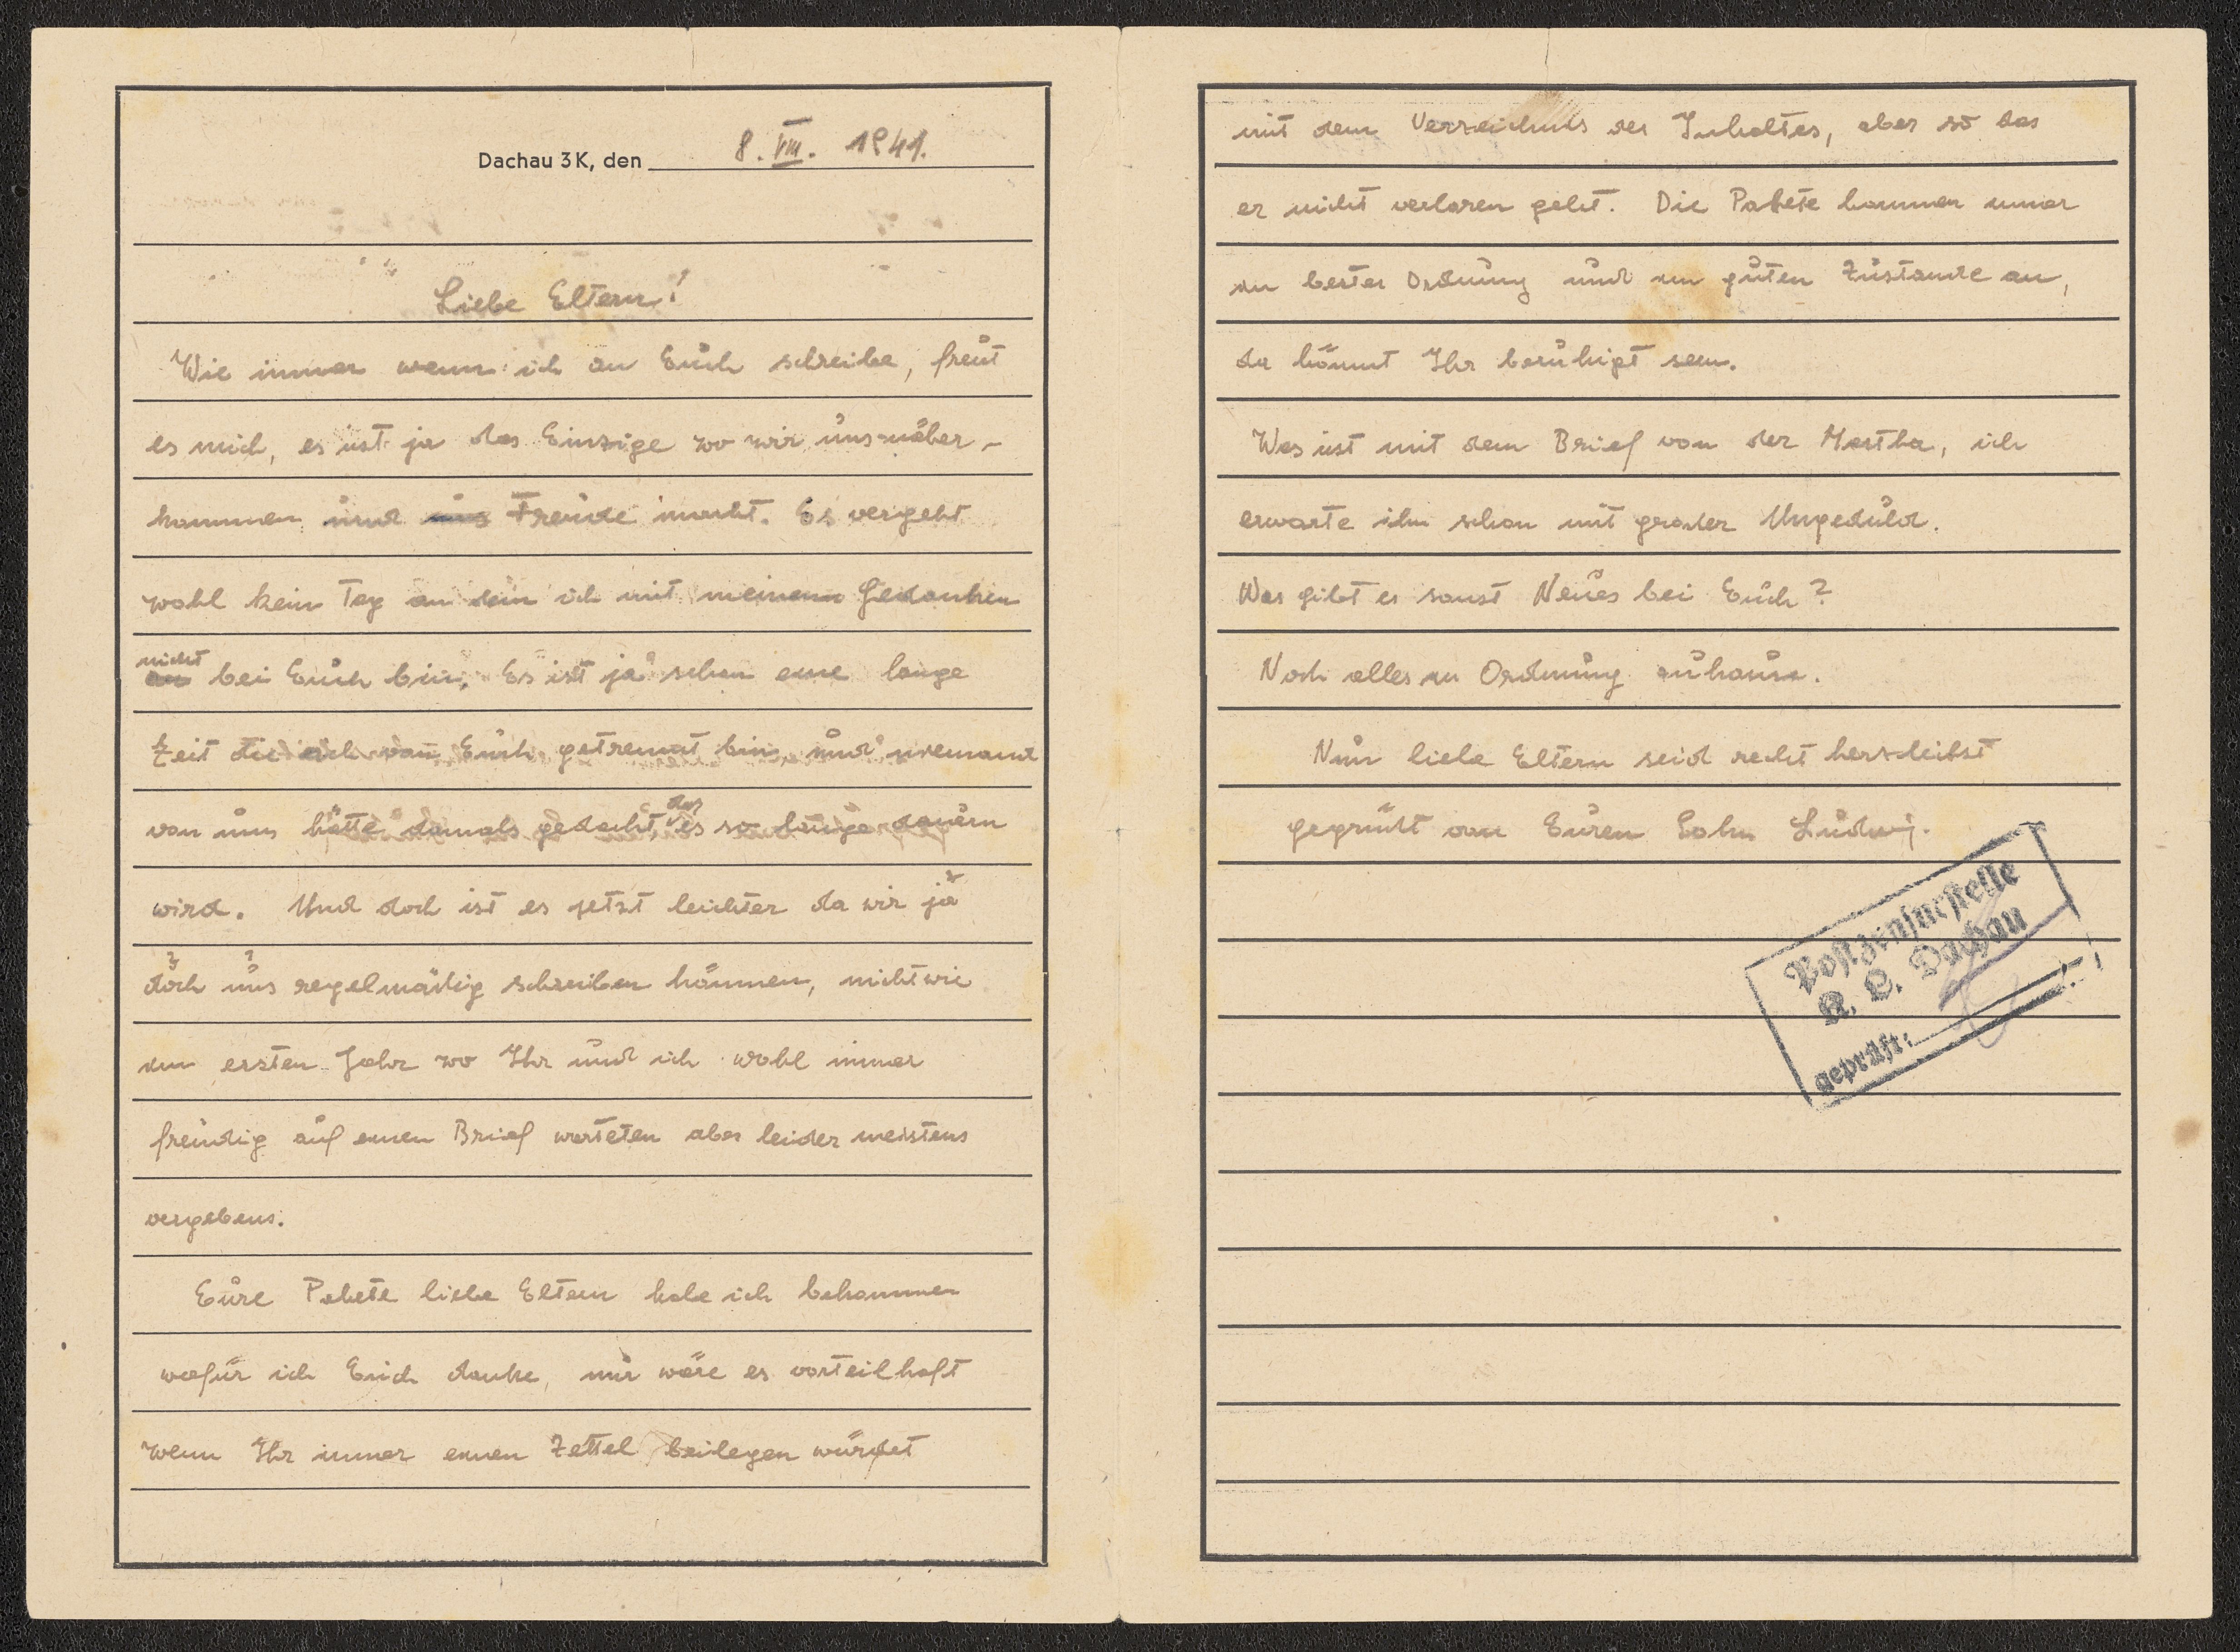 Dachau 3K, den 8. VIII. 1941.
Liebe Eltern!
Wie immer wenn ich an Euch schreibe, freut
es mich, es ist ja das Einzige wo wir uns näher-
kommen und Freude macht. Es vergeht
wohl kein Tag an dem ich mit meinem Gedanken
nicht bei Euch bin. Es ist ja schon eine lange
Zeit die ich von Euch getrennt bin, und niemand
von uns hätte damals gedacht, das es so lange dauern
wird. Und doch ist es jetzt leichter da wir ja
doch uns regelmäßig schreiben können, nicht wie
im ersten Jahr wo Ihr und ich wohl immer
freudig auf einen Brief warteten aber leider meistens
vergebens.
Eure Pakete liebe Eltern habe ich bekommen
wofür ich Euch danke, mir wäre es vorteilhaft
wenn Ihr immer einen Zettel beilegen würdet
mit dem Verzeichnis des Inhaltes, aber so das
er nicht verloren geht. Die Pakete kommen immer
in bester Ordnung und im guten Zustande an,
da könnt Ihr beruhigt sein.
Was ist mit dem Brief von der Martha, ich
erwarte ihn schon mit großer Ungeduld.
Was gibt es sonst Neues bei Euch?
Noch alles in Ordnung zuhause.
Nun liebe Eltern seid recht herzleibst
gegrüßt von Euren Sohn Ludwig.
Postzensurstelle
K. L. Dachau
geprüft: